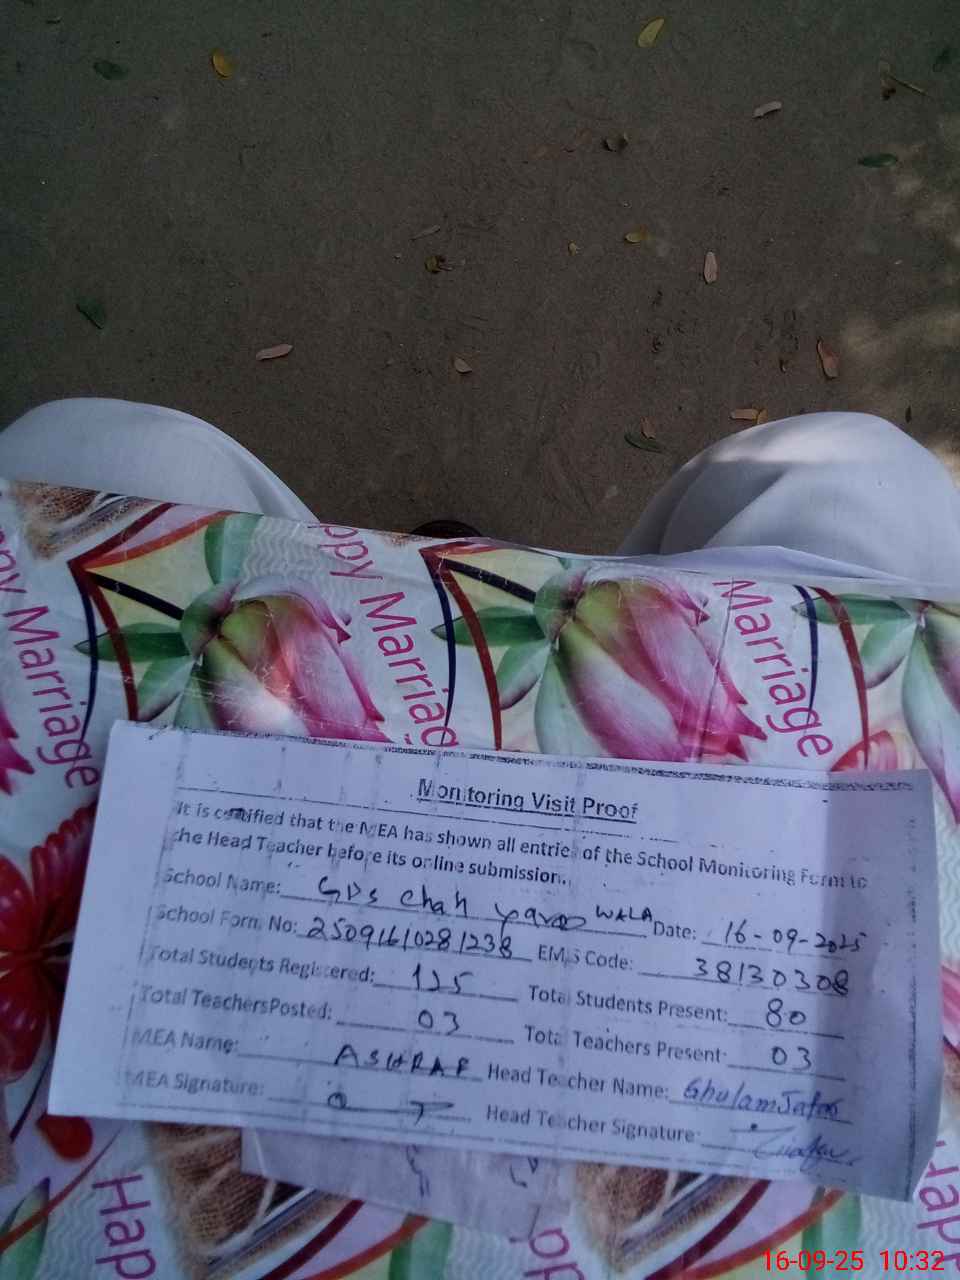 Happy Marriage
Happy Marriage
Marriage
Monitoring Visit Proof
It is certified that the MEA has shown all entries of the School Monitoring Form to
the Head Teacher before its online submission.
School Name: GPS Chah WALA Date: 16-09-2025
School Form No: 25091610281238 EMIS Code: 38130308
Total Students Registered: 125 Total Students Present: 80
Total Teachers Posted: 03 Total Teachers Present: 03
MEA Name: ASHRAF Head Teacher Name: Ghulam Jafar
MEA Signature: Head Teacher Signature:
Hap
16-09-25 10:32